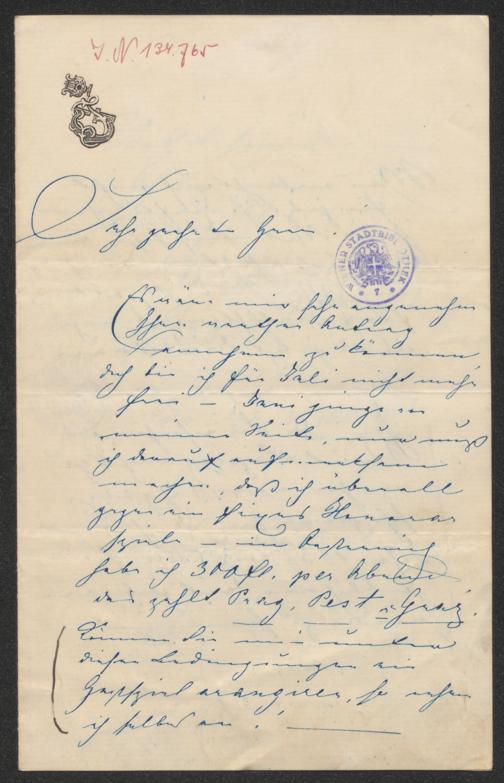 J. N. 134.765
WIENER STADTBIBLIOTHEK
Sehr geehrter Herr.
Es wäre mir sehr angenehm
Ihren werthen Antrag
annehmen zu können,
doch bin ich für Juli nicht mehr
frei – Juni ginge es
meiner Seits, nur muß
ich darauf aufmerksam
machen, daß ich überall
gegen ein fixes Honorar
spiele – in Oesterreich
habe ich 300 fl. per Abend
das zahlt Prag, Pest u Graz.
Können Sie mir unter
diesen Bedingungen ein
Gastspiel arangiren, so nehme
ich selbes an. –